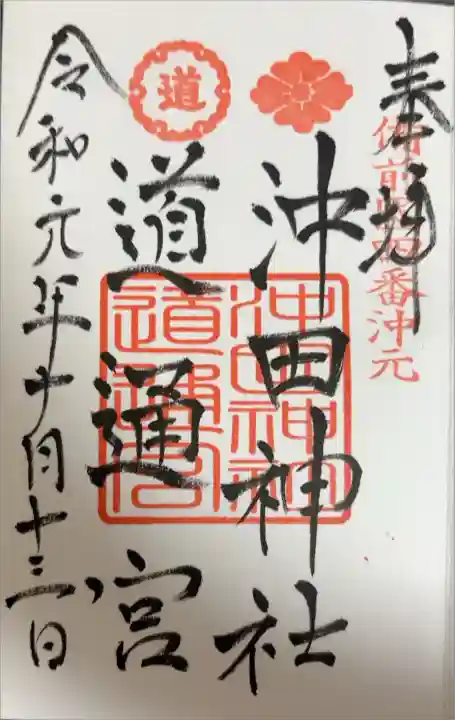 奉拝
備前国四番沖元
沖田神社
道
道通宮
沖田神社
道通宮
令和元年十月十三日